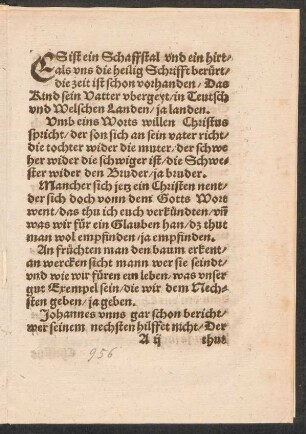 ES ist ein Schaffstal vnd ein hirt/
als vns die heilig Schrifft berürt/
die zeit ist schon vorhanden/ Das
Kind sein Vatter vbergeyt/ in Teutsch
vnd Welschen Landen/ ja landen.
Vmb eins Worts willen Christus
spricht/ der son sich an sein vater richt/
die tochter wider die muter/ der schwe
her wider die schwiger ist/ die Schwe-
ster wider den Bruder/ ja bruder.
Mancher sich jetz ein Christen nent/
der sich doch vonn dem Gotts Wort
went/ das thu ich euch verkündten/ vñ
was wir für ein Glauben han/ dz thut
man wol empfinden/ ja empfinden.
An früchten man den baum erkent/
an wercken sicht mann wer sie seindt/
vnd wie wir füren ein leben/ was vnser
gut Exempel sein/ die wir dem Nech-
sten geben/ ja geben.
Johannes vnns gar schon bericht/
wer seinem nechsten hilffet nicht/ Der
A ij thut
956